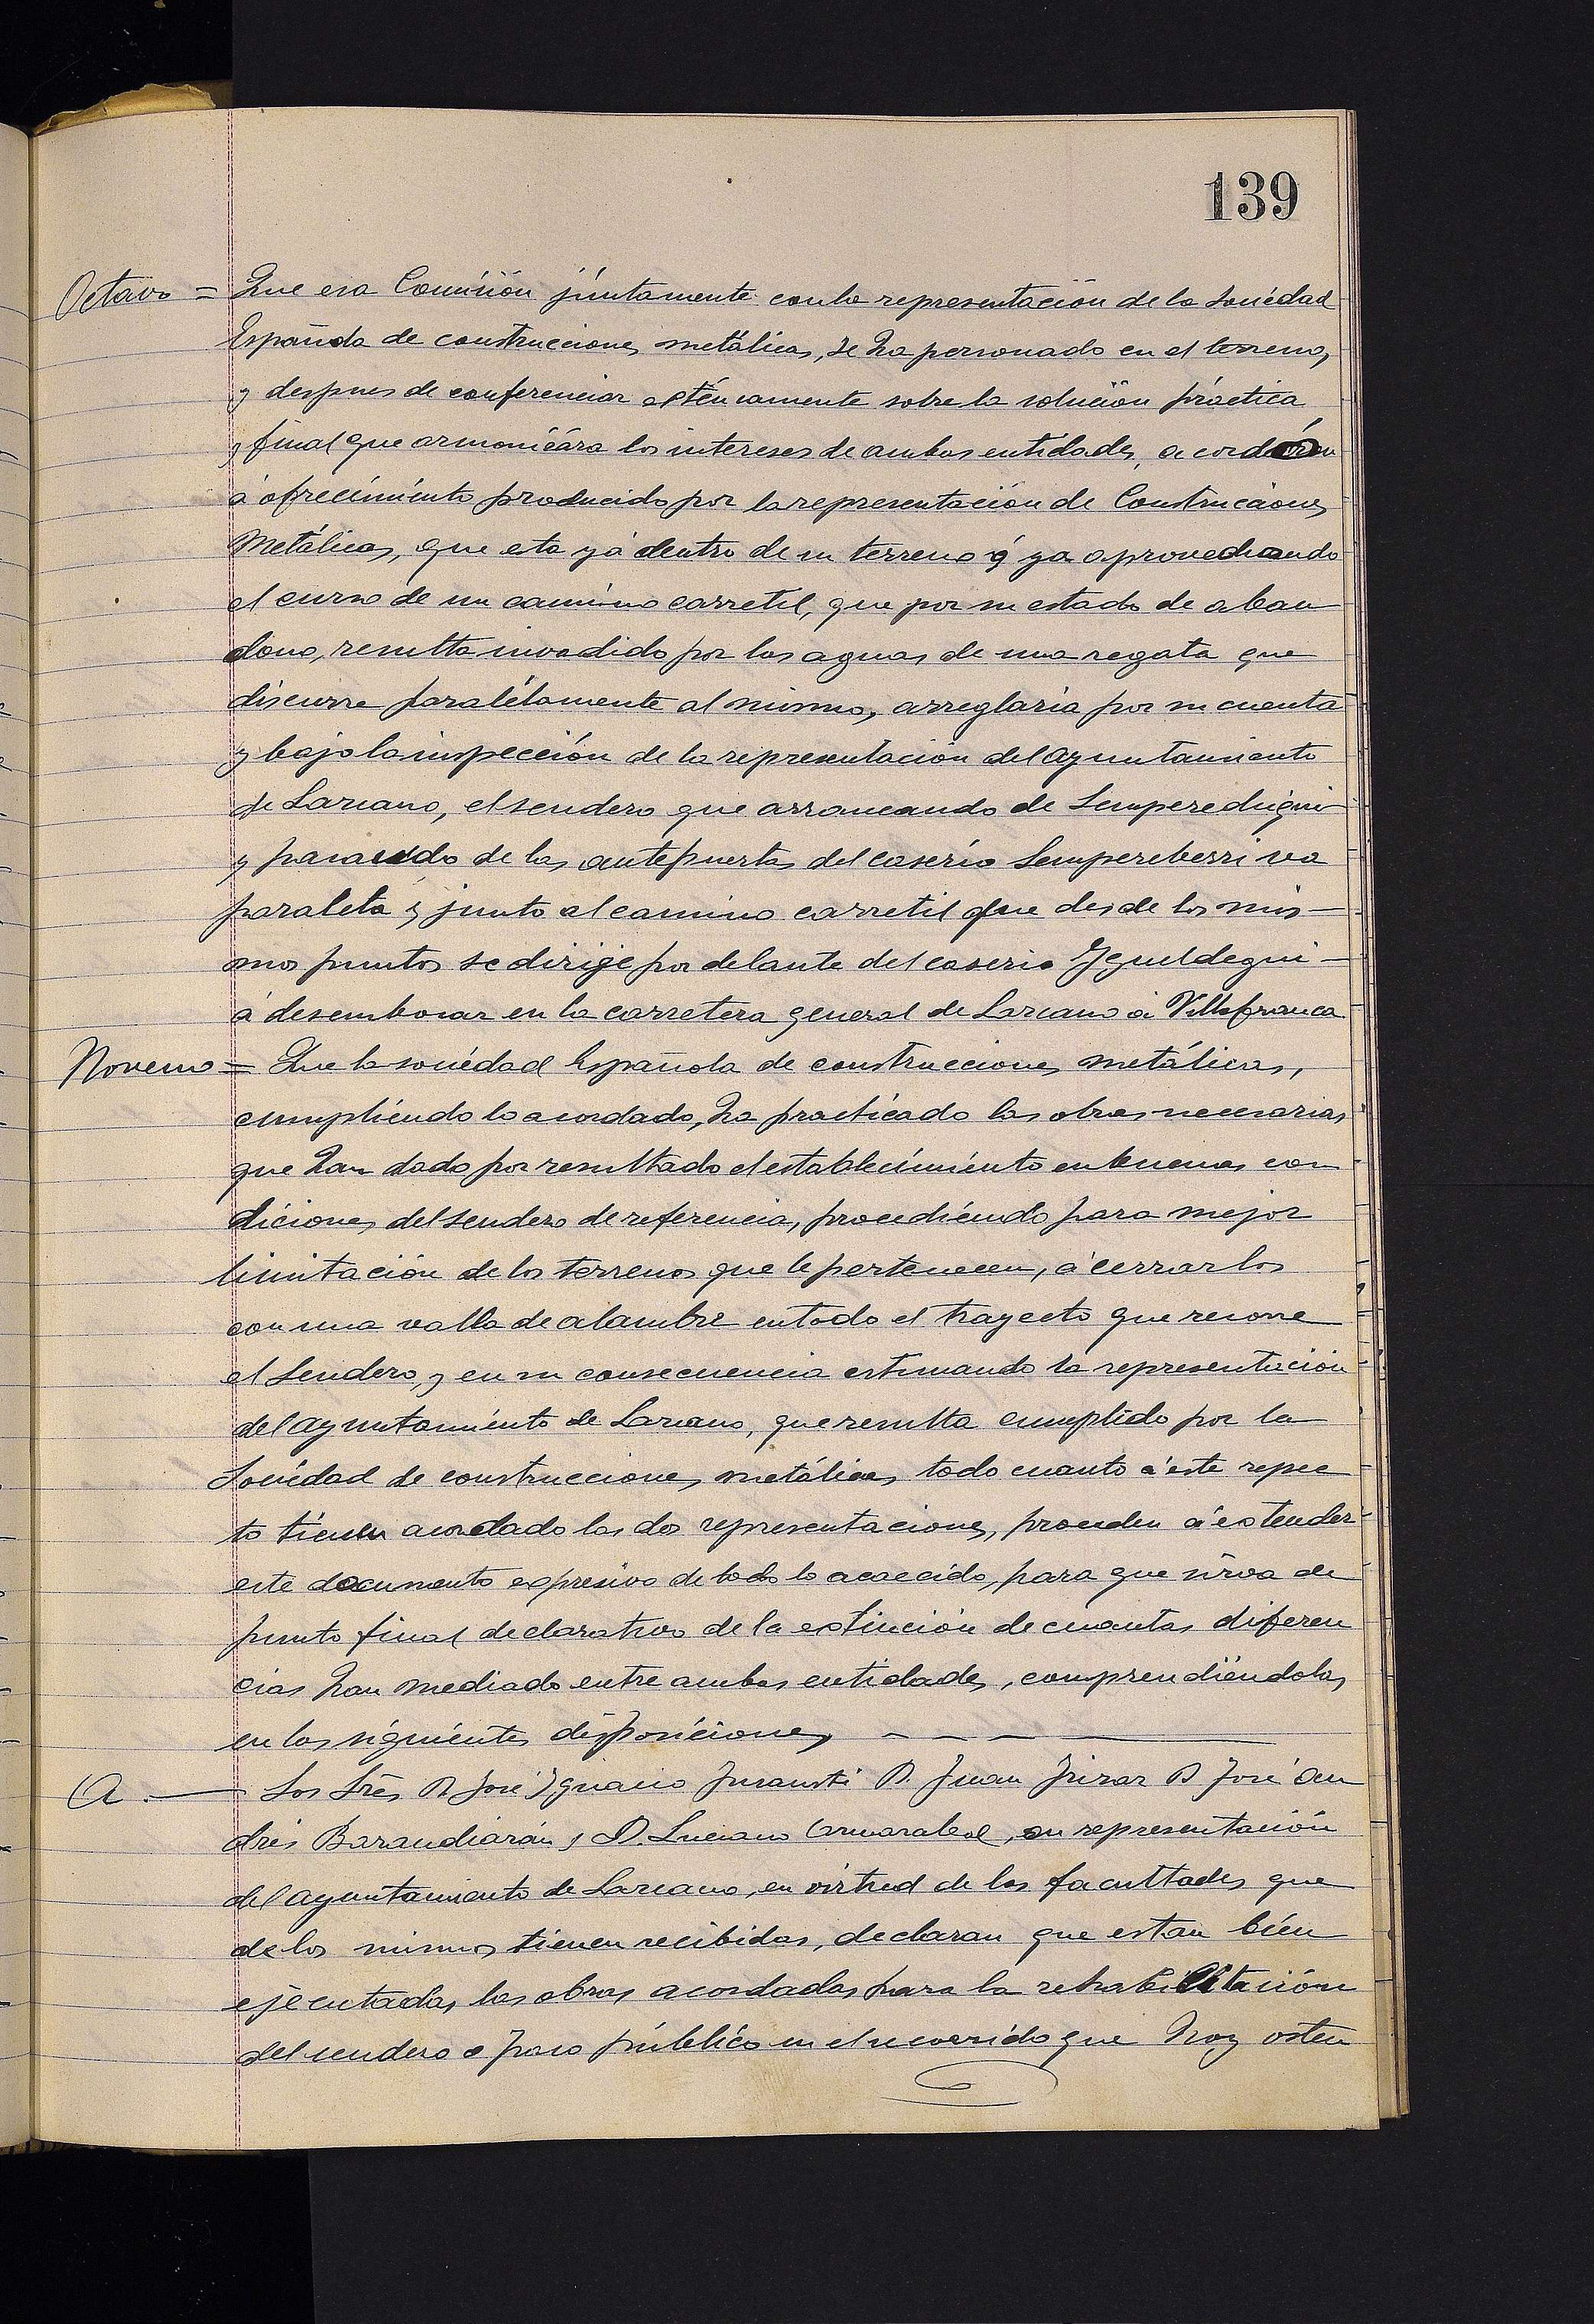 139
Octavo = Que esa Comisión juntamente con la representación de la Sociedad
Española de construcciones metálicas, se ha personado en el terreno,
y despues de conferenciar extensamente sobre la solución práctica
y final que armonizára los intereses de ambas entidades, acordaron
á ofrecimiento producido por la representación de Construcciones
Metálicas, que esta yá dentro de su terreno ó ya aprovechando
el curso de un camino carretil, que por su estado de aban
dono, resulta invadido por las aguas de una regata que
discurre paralélamente al mismo, arreglaría por su cuenta
y bajo la inspección de la representación del Ayuntamiento
de Lazcano, el sendero que arrancando de Semperedegui
y pasando de las antepuertas del caserío Sempereberri va
paralela y junto al camino carretil que desde los mis-
mos puntos se dirige por delante del caserio Igueldegui-
á desembocar en la carretera general de Lazcano á Villafranca
Noveno = Que la sociedad Española de construcciones metálicas,
cumpliendo lo acordado, ha practicado las obras necesarias,
que han dado por resultado el establecimiento en buenas con
diciones del sendero de referencia, procediéndo para mejor
limitación de los terrenos que le pertenecen, á cerrarlos
con una valla de alambre en todo el trayecto que recorre
el Sendero, y en su consecuencia estimando la representación
del Ayuntamiento de Lazcano, que resulta cumplido por la
Sociedad de construcciones metálicas todo cuanto á este respec
to tienen acordado las dos representaciones, proceden á estender
este documento expresivo de todo lo acaecido, para que sirva de
punto final declarativo de la extinción de cuantas diferen
cias han mediado entre ambas entidades, comprendiéndolas
en las siguientes disposiciones, — — — —
A. — Los Srēs D José Ignacio Insausti D. Juan Irizar D José An
drés Barandiarán y D. Luciano, en representación
del ayuntamiento de Lazcano, en virtud de las facultades que
de los mismos tienen recibidas, declaran que estan bien
ejecutadas las obras acordadas para la rehabilitación
del sendero o paso público en el recorrido que hoy osten